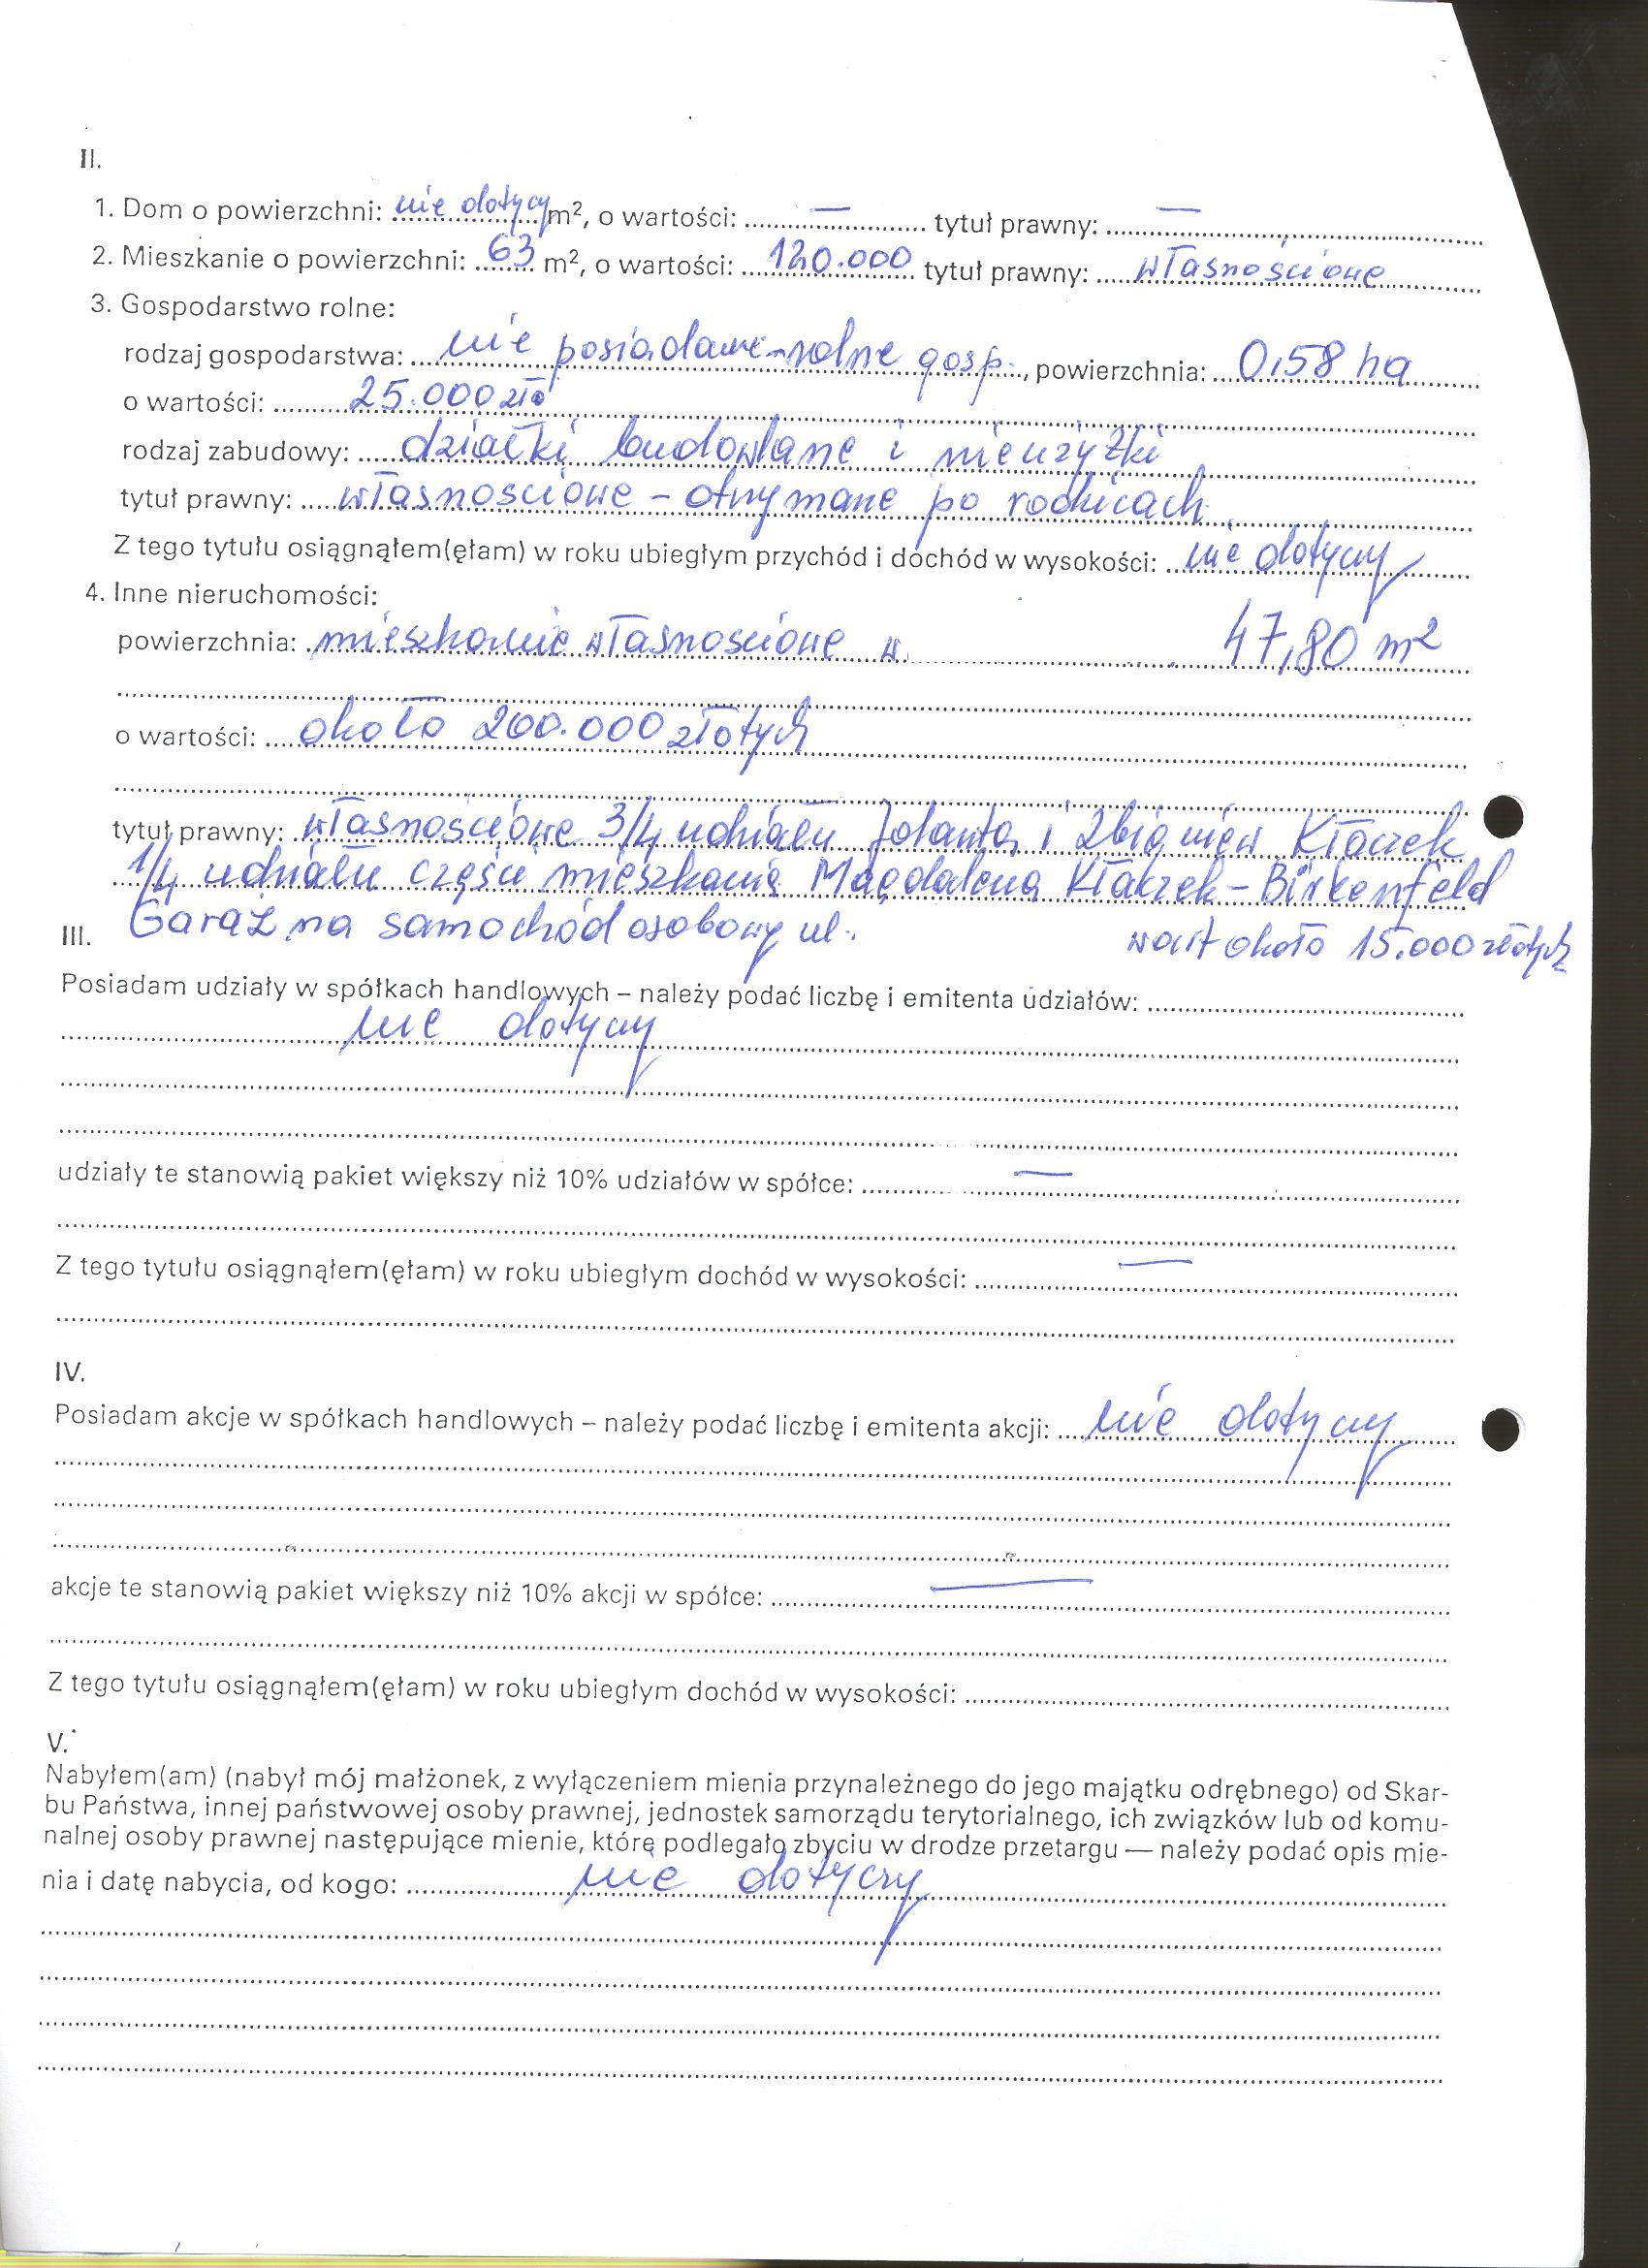 II.
1. Dom o powierzchni: nie dotyczy m², o wartości: — tytuł prawny: —
2. Mieszkanie o powierzchni: 63 m², o wartości: 120.000 tytuł prawny: własnościowe
3. Gospodarstwo rolne:
rodzaj gospodarstwa: nie posiadam - rolne gosp., powierzchnia: 0,58 ha
o wartości: 25.000 zło
rodzaj zabudowy: działki budowlane i nieużytki
tytuł prawny: własnościowe – otrzymane po rodzicach
Z tego tytułu osiągnąłem(ęłam) w roku ubiegłym przychód i dochód w wysokości: nie dotyczy
4. Inne nieruchomości:
powierzchnia: mieszkanie własnościowe w 47,80 m²
o wartości: około 200.000 złotych
tytuł prawny: własnościowe 3/4 udziału Jolanta i Zbigniew Kłaczek
1/4 udziału części mieszkania Magdalena Kłaczek – Birkenfeld
Garaż na samochód osobowy ul. wart około 15.000 złotych
III.
Posiadam udziały w spółkach handlowych – należy podać liczbę i emitenta udziałów:
nie dotyczy
udziały te stanowią pakiet większy niż 10% udziałów w spółce: —
Z tego tytułu osiągnąłem(ęłam) w roku ubiegłym dochód w wysokości: —
IV.
Posiadam akcje w spółkach handlowych – należy podać liczbę i emitenta akcji: nie dotyczy
akcje te stanowią pakiet większy niż 10% akcji w spółce: —
Z tego tytułu osiągnąłem(ęłam) w roku ubiegłym dochód w wysokości:
V.
Nabyłem(am) (nabył mój małżonek, z wyłączeniem mienia przynależnego do jego majątku odrębnego) od Skar-
bu Państwa, innej państwowej osoby prawnej, jednostek samorządu terytorialnego, ich związków lub od komu-
nalnej osoby prawnej następujące mienie, którę podlegało zbyciu w drodze przetargu — należy podać opis mie-
nia i datę nabycia, od kogo: nie dotyczy